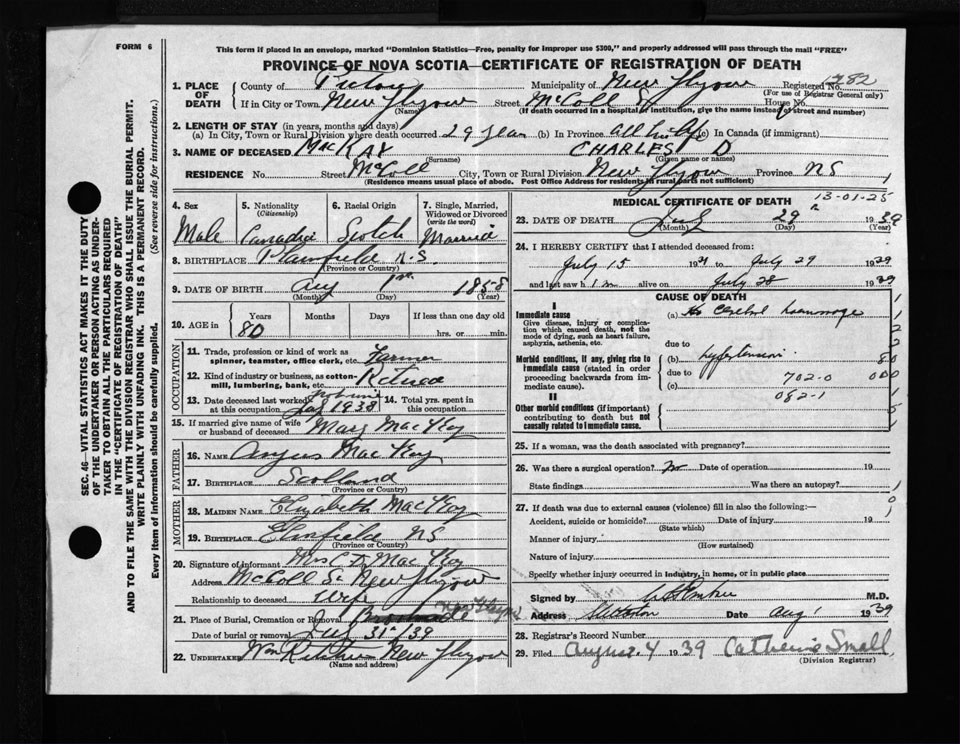 FORM 6
This form if placed in an envelope, marked "Dominion Statistics—Free, penalty for improper use $300," and properly addressed will pass through the mail "FREE"
PROVINCE OF NOVA SCOTIA—CERTIFICATE OF REGISTRATION OF DEATH
SEC. 46—VITAL STATISTICS ACT MAKES IT THE DUTY
OF THE UNDERTAKER OR PERSON ACTING AS UNDER-
TAKER TO OBTAIN ALL THE PARTICULARS REQUIRED
IN THE "CERTIFICATE OF REGISTRATION OF DEATH"
AND TO FILE THE SAME WITH THE DIVISION REGISTRAR WHO SHALL ISSUE THE BURIAL PERMIT.
WRITE PLAINLY WITH UNFADING INK. THIS IS A PERMANENT RECORD.
Every item of Information should be carefully supplied. (See reverse side for instructions.)
1. PLACE OF DEATH County of Pictou Municipality of New Glasgow Registered No. 1282
(For use of Registrar General only)
If in City or Town New Glasgow Street McColl St House No.
(Name) (If death occurred in a hospital or institution, give the name instead of street and number)
2. LENGTH OF STAY (in years, months and days)
(a) In City, Town or Rural Division where death occurred 29 years (b) In Province all his life (c) In Canada (if immigrant)
3. NAME OF DECEASED MacKAY CHARLES D
(Surname) (Given name or names)
RESIDENCE No Street McColl City, Town or Rural Division New Glasgow Province NS
(Residence means usual place of abode. Post Office Address for residents in rural parts not sufficient)
4. Sex 5. Nationality (Citizenship) 6. Racial Origin 7. Single, Married, Widowed or Divorced (write the word)
Male Canadian Scotch Married
8. BIRTHPLACE Plainfield N.S.
(Province or Country)
9. DATE OF BIRTH Aug 1st 1858
(Month) (Day) (Year)
10. AGE in Years Months Days If less than one day old
80 hrs. or min.
OCCUPATION
11. Trade, profession or kind of work as spinner, teamster, office clerk, etc. Farmer
12. Kind of industry or business, as cotton-mill, lumbering, bank, etc. Retired
13. Date deceased last worked at this occupation 1938 14. Total yrs. spent in this occupation
15. If married give name of wife or husband of deceased Mary MacKay
FATHER
16. NAME Angus MacKay
17. BIRTHPLACE Scotland
(Province or Country)
MOTHER
18. MAIDEN NAME Elizabeth MacKay
19. BIRTHPLACE NS
(Province or Country)
20. Signature of informant Mrs C D MacKay
Address McColl St New Glasgow
Relationship to deceased Wife
21. Place of Burial, Cremation or Removal New Glasgow
Date of burial or removal July 31st/39
22. UNDERTAKER Wm New Glasgow
(Name and address)
MEDICAL CERTIFICATE OF DEATH
13-01-25
23. DATE OF DEATH July 29 1939
(Month) (Day) (Year)
24. I HEREBY CERTIFY that I attended deceased from:
July 15 1939 to July 29 1939
and last saw him alive on July 28 1939
CAUSE OF DEATH
I
Immediate cause (a) Cerebral haemorrage
Give disease, injury or complication which caused death, not the mode of dying, such as heart failure, asphyxia, asthenia, etc.
due to
Morbid conditions, if any, giving rise to immediate cause (stated in order proceeding backwards from immediate cause). (b) hypertension
due to 702-0
(c) 082-1
II
Other morbid conditions (if important) contributing to death but not causally related to immediate cause.
25. If a woman, was the death associated with pregnancy?
26. Was there a surgical operation? no Date of operation 19
State findings Was there an autopsy?
27. If death was due to external causes (violence) fill in also the following:—
Accident, suicide or homicide? Date of injury 19
(State which)
Manner of injury
(How sustained)
Nature of injury
Specify whether injury occurred in industry, in home, or in public place
Signed by M.D.
Address Date Aug 1 1939
28. Registrar's Record Number
29. Filed August 4 1939 Catherine Small
(Division Registrar)